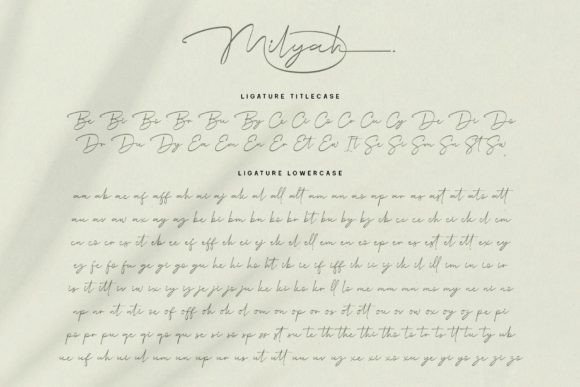 Milyah
LIGATURE TITLECASE
Be Bi Bo Br Bu By Ce Ci Co Co Cu Cy De Di Do
Dr Du Dy Ea Em En Er Et Ew It Se Si Sm Sn St Su
LIGATURE LOWERCASE
aa ab ac af aff ah ai aj ak al all alt am an ao ap ar as ast at ato att
au av aw ax ay az be bi bm bn bo br bt bu by bz cb cc ce ch ci ck cl cm
cn co cr cs ct eb ec ef eff eh ei ej ek el ell em en eo ep er es est et ett ex ey
ez fe fo fu ge gi go gu he hi ho ht ib ic if iff ih ii ij ik il ill im in io ir
is it itt iv iw ix iy iz je ji jo ju ke ki ko kr ll lo me mm mn mo my ne ni no
np nr nt nti oc of off oh ok ol om on op or os ot ott ou ov ow ox oy oz pe pi
po pr pu qe qi qo qu se si so sp ss st su te th the thi tho to tr ts tt tu ty ub
ue uf uh ui ul um un up ur us ut utt uu uv uz xe xi xo xu ye yi yo ze zi zo